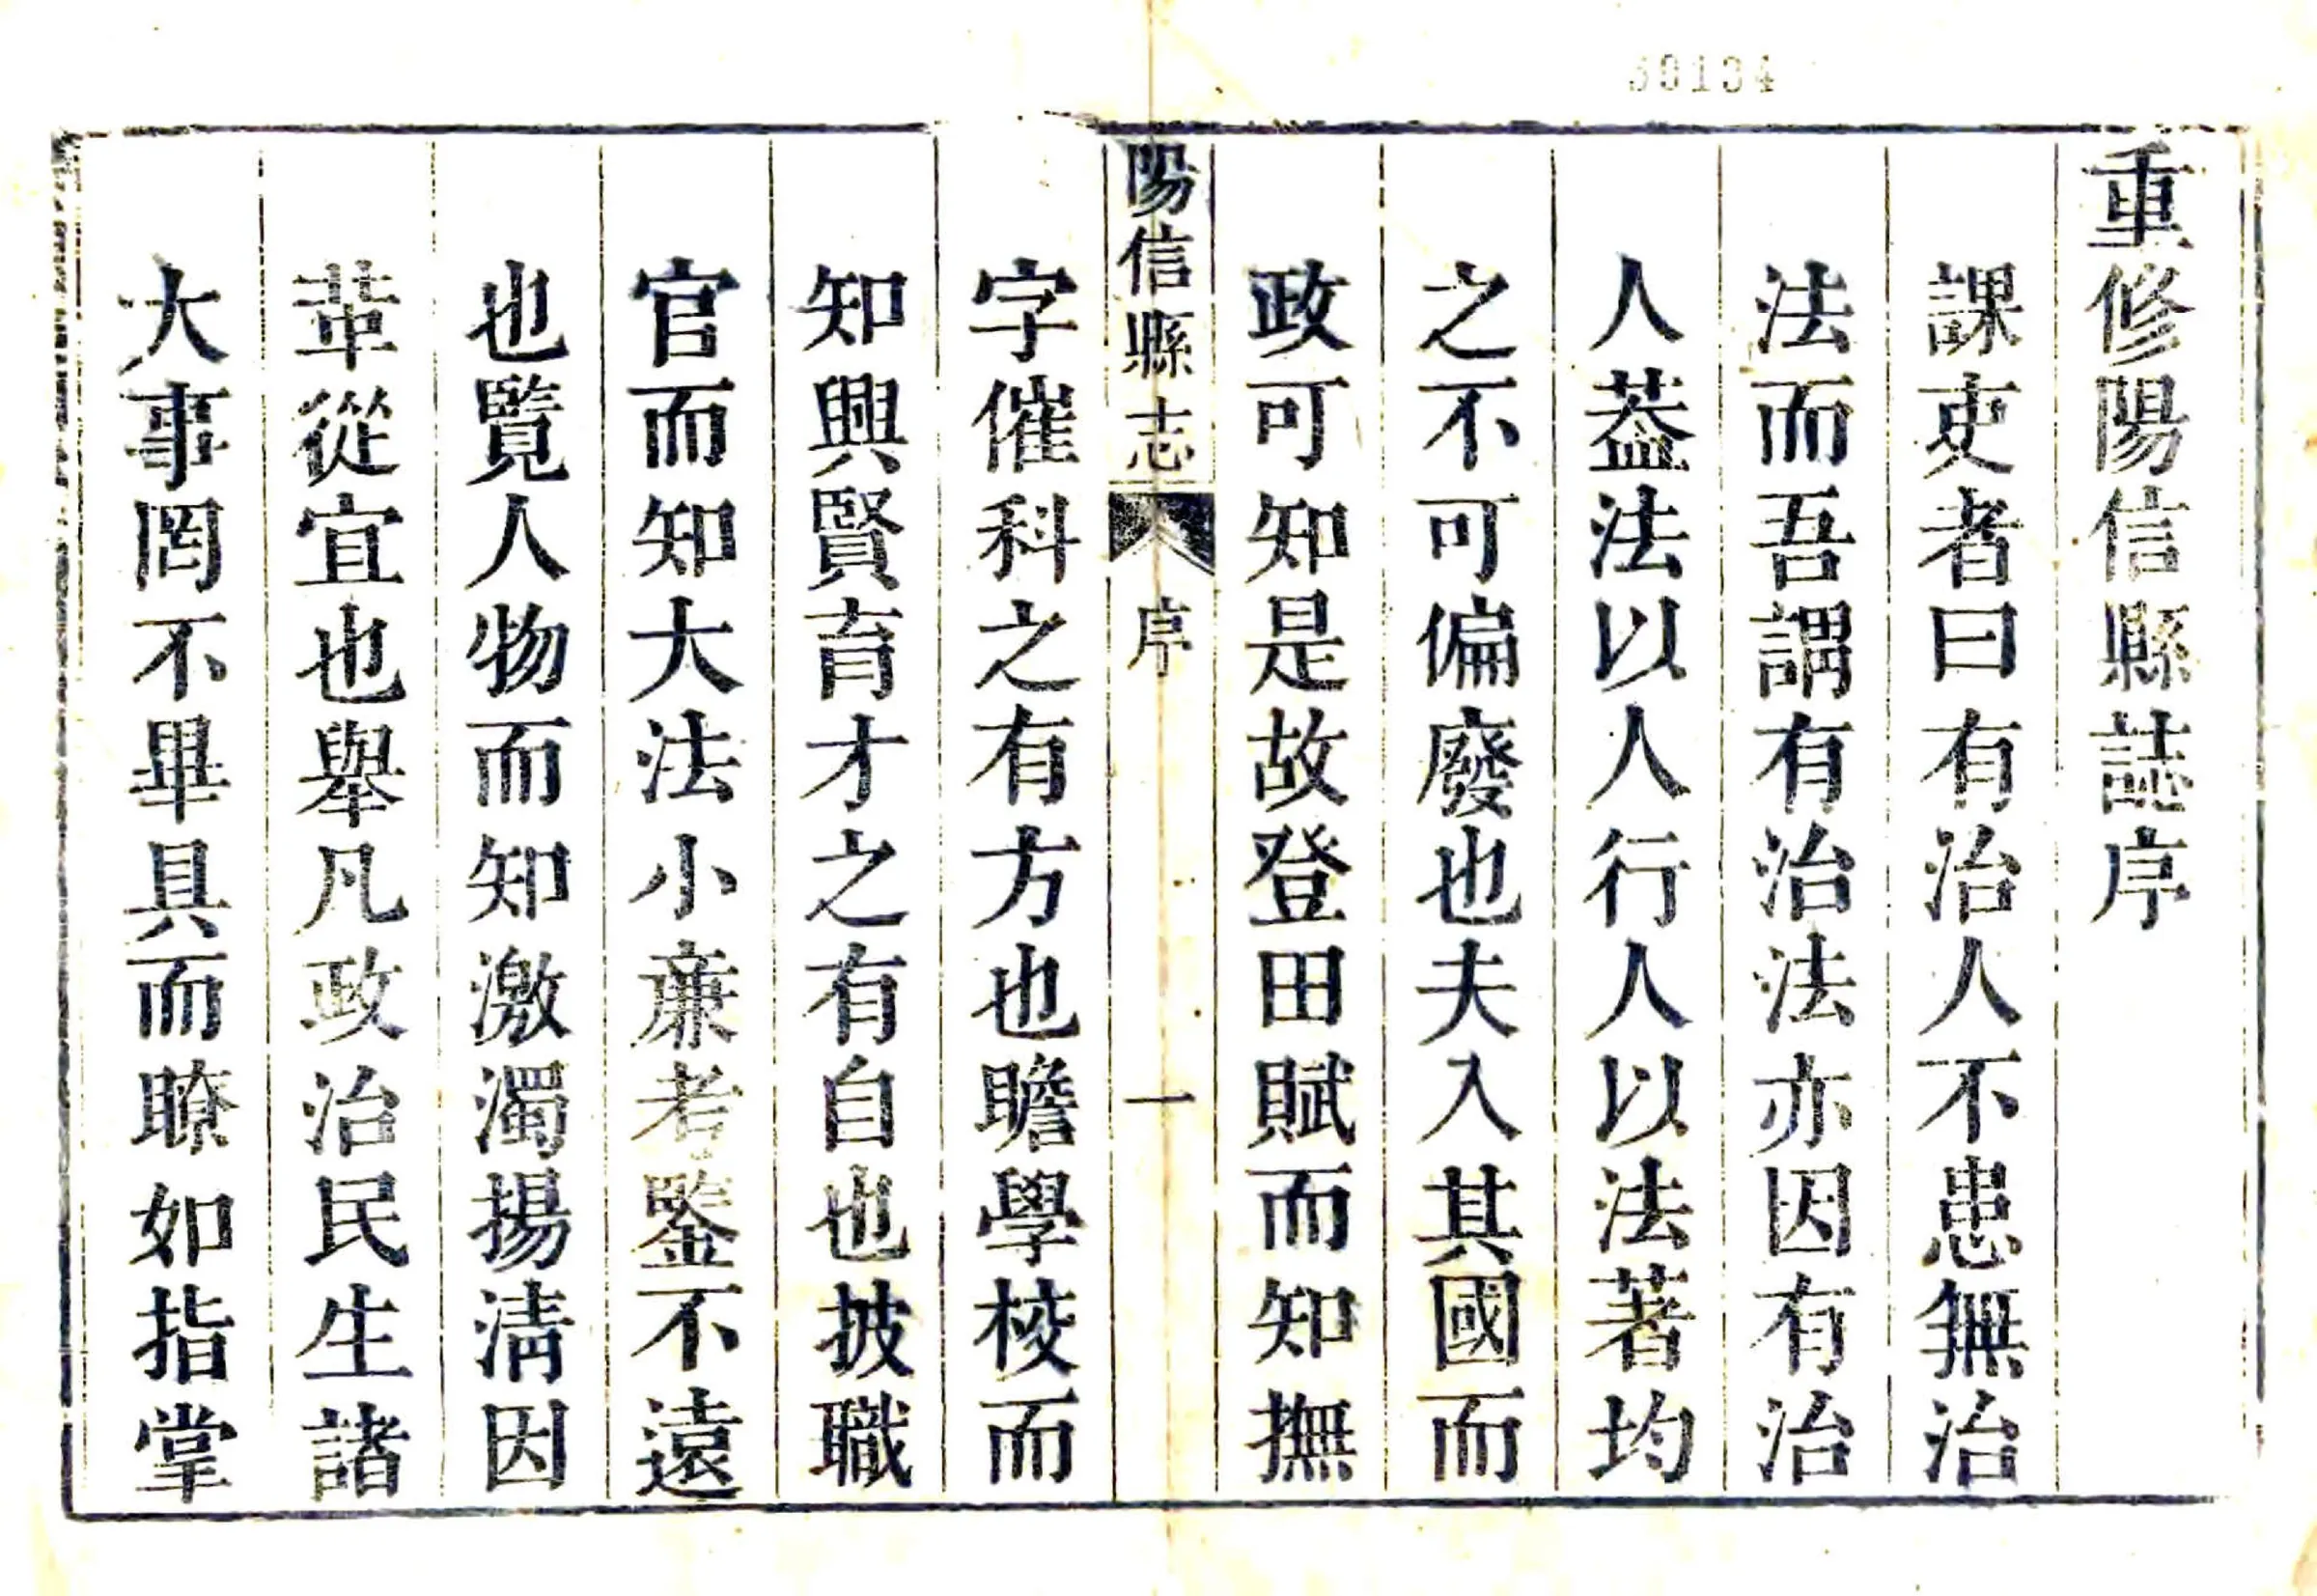 重修陽信縣誌序
課吏者曰有治人不患無治
法而吾謂有治法亦因有治
人葢法以人行人以法著均
之不可偏廢也夫入其國而
政可知是故登田賦而知撫
陽信縣志
序
一
字催科之有方也瞻學校而
知興賢育才之有自也披職
官而知大法小亷考鑒不遠
也覽人物而知激濁揚淸因
革從宜也舉凡政治民生諸
大事罔不畢具而瞭如指掌